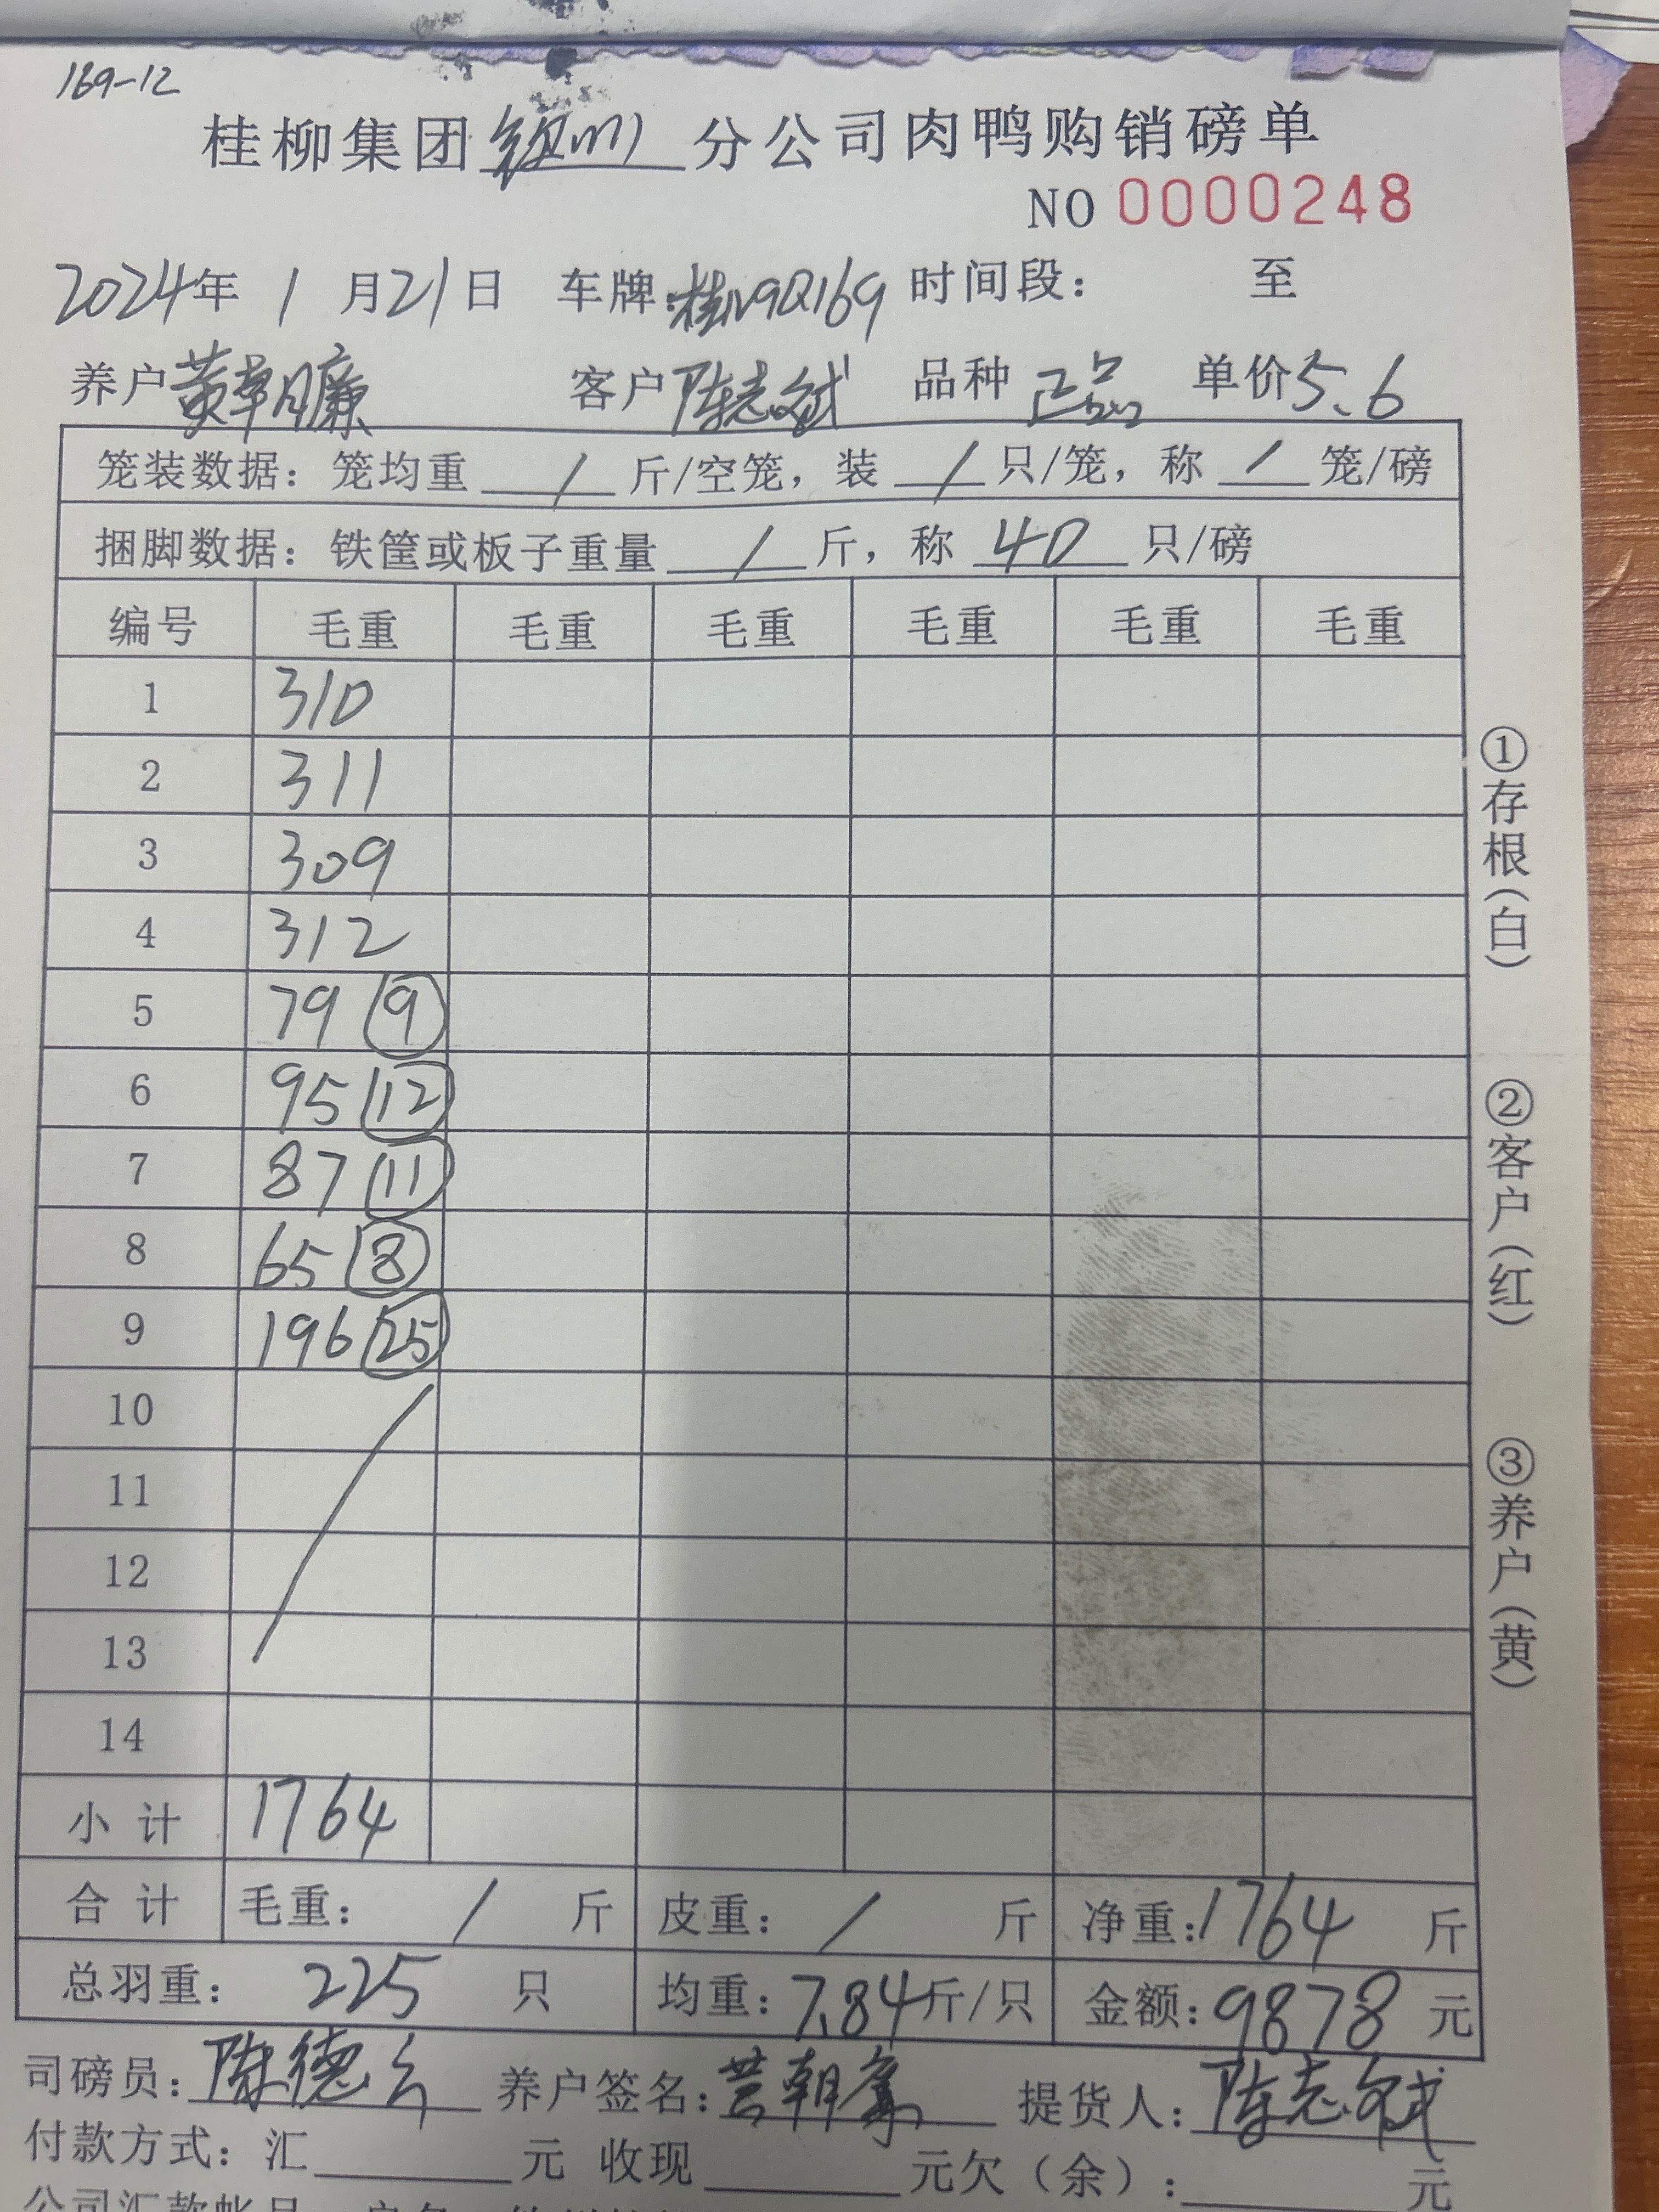 169-12
桂柳集团钦州分公司肉鸭购销磅单
NO 0000248
2024年 1 月21日 车牌:桂N9Q169 时间段: 至
养户黄朝廉 客户陈志斌 品种 正品 单价5.6
笼装数据:笼均重 / 斤/空笼,装 / 只/笼,称 / 笼/磅
捆脚数据:铁筐或板子重量 / 斤,称 40 只/磅
编号 毛重 毛重 毛重 毛重 毛重 毛重
1 310
2 311
3 309
4 312
5 79 ⑨
6 95 ⑫
7 87 ⑪
8 65 ⑧
9 196 ㉕
10
11
12
13
14
小计 1764
合计 毛重: / 斤 皮重: / 斤 净重:1764 斤
总羽重: 225 只 均重:7.84斤/只 金额:9878 元
司磅员:陈德 养户签名:黄朝廉 提货人:陈志斌
付款方式:汇 元 收现 元欠(余): 元
公司汇款帐号
①存根(白) ②客户(红) ③养户(黄)